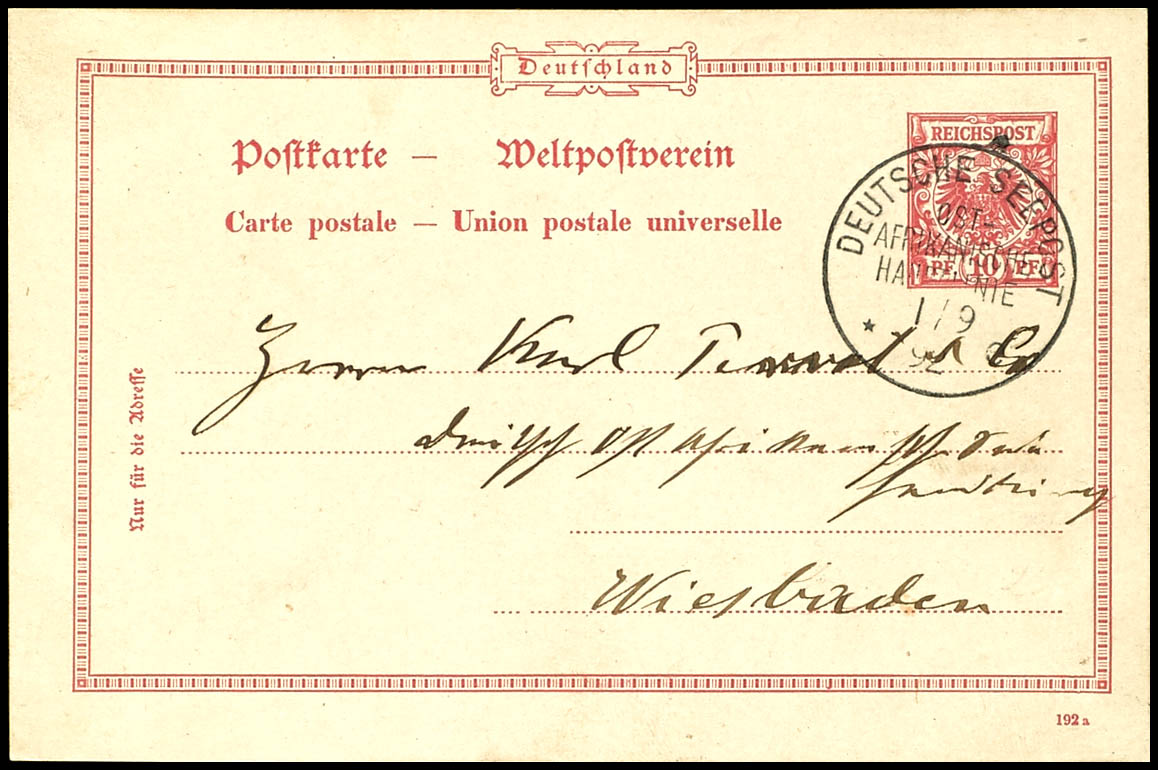 Deutschland
Postkarte — Weltpostverein
Carte postale — Union postale universelle
REICHSPOST
PF 10 PF
DEUTSCHE SEEPOST
OST-
AFRIKANISCHE
HAUPTLINIE
1/9
92
Nur für die Adresse
Herrn Karl & Co
Wiesbaden
192 a